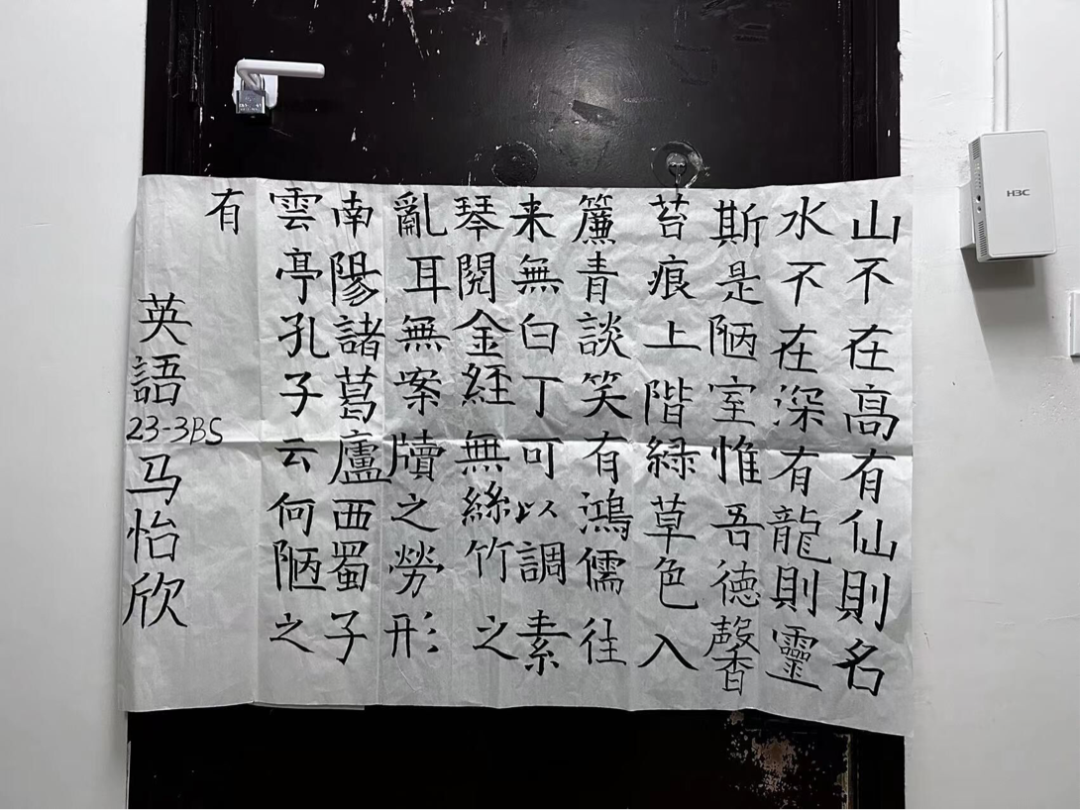 山不在高有仙則名
水不在深有龍則靈
斯是陋室惟吾德馨
苔痕上階緑草色入
簾青談笑有鴻儒往
来無白丁可以調素
琴閱金経無絲竹之
亂耳無案牘之勞形
南陽諸葛廬西蜀子
雲亭孔子云何陋之
有
英語
23-3BS
马怡欣
H3C